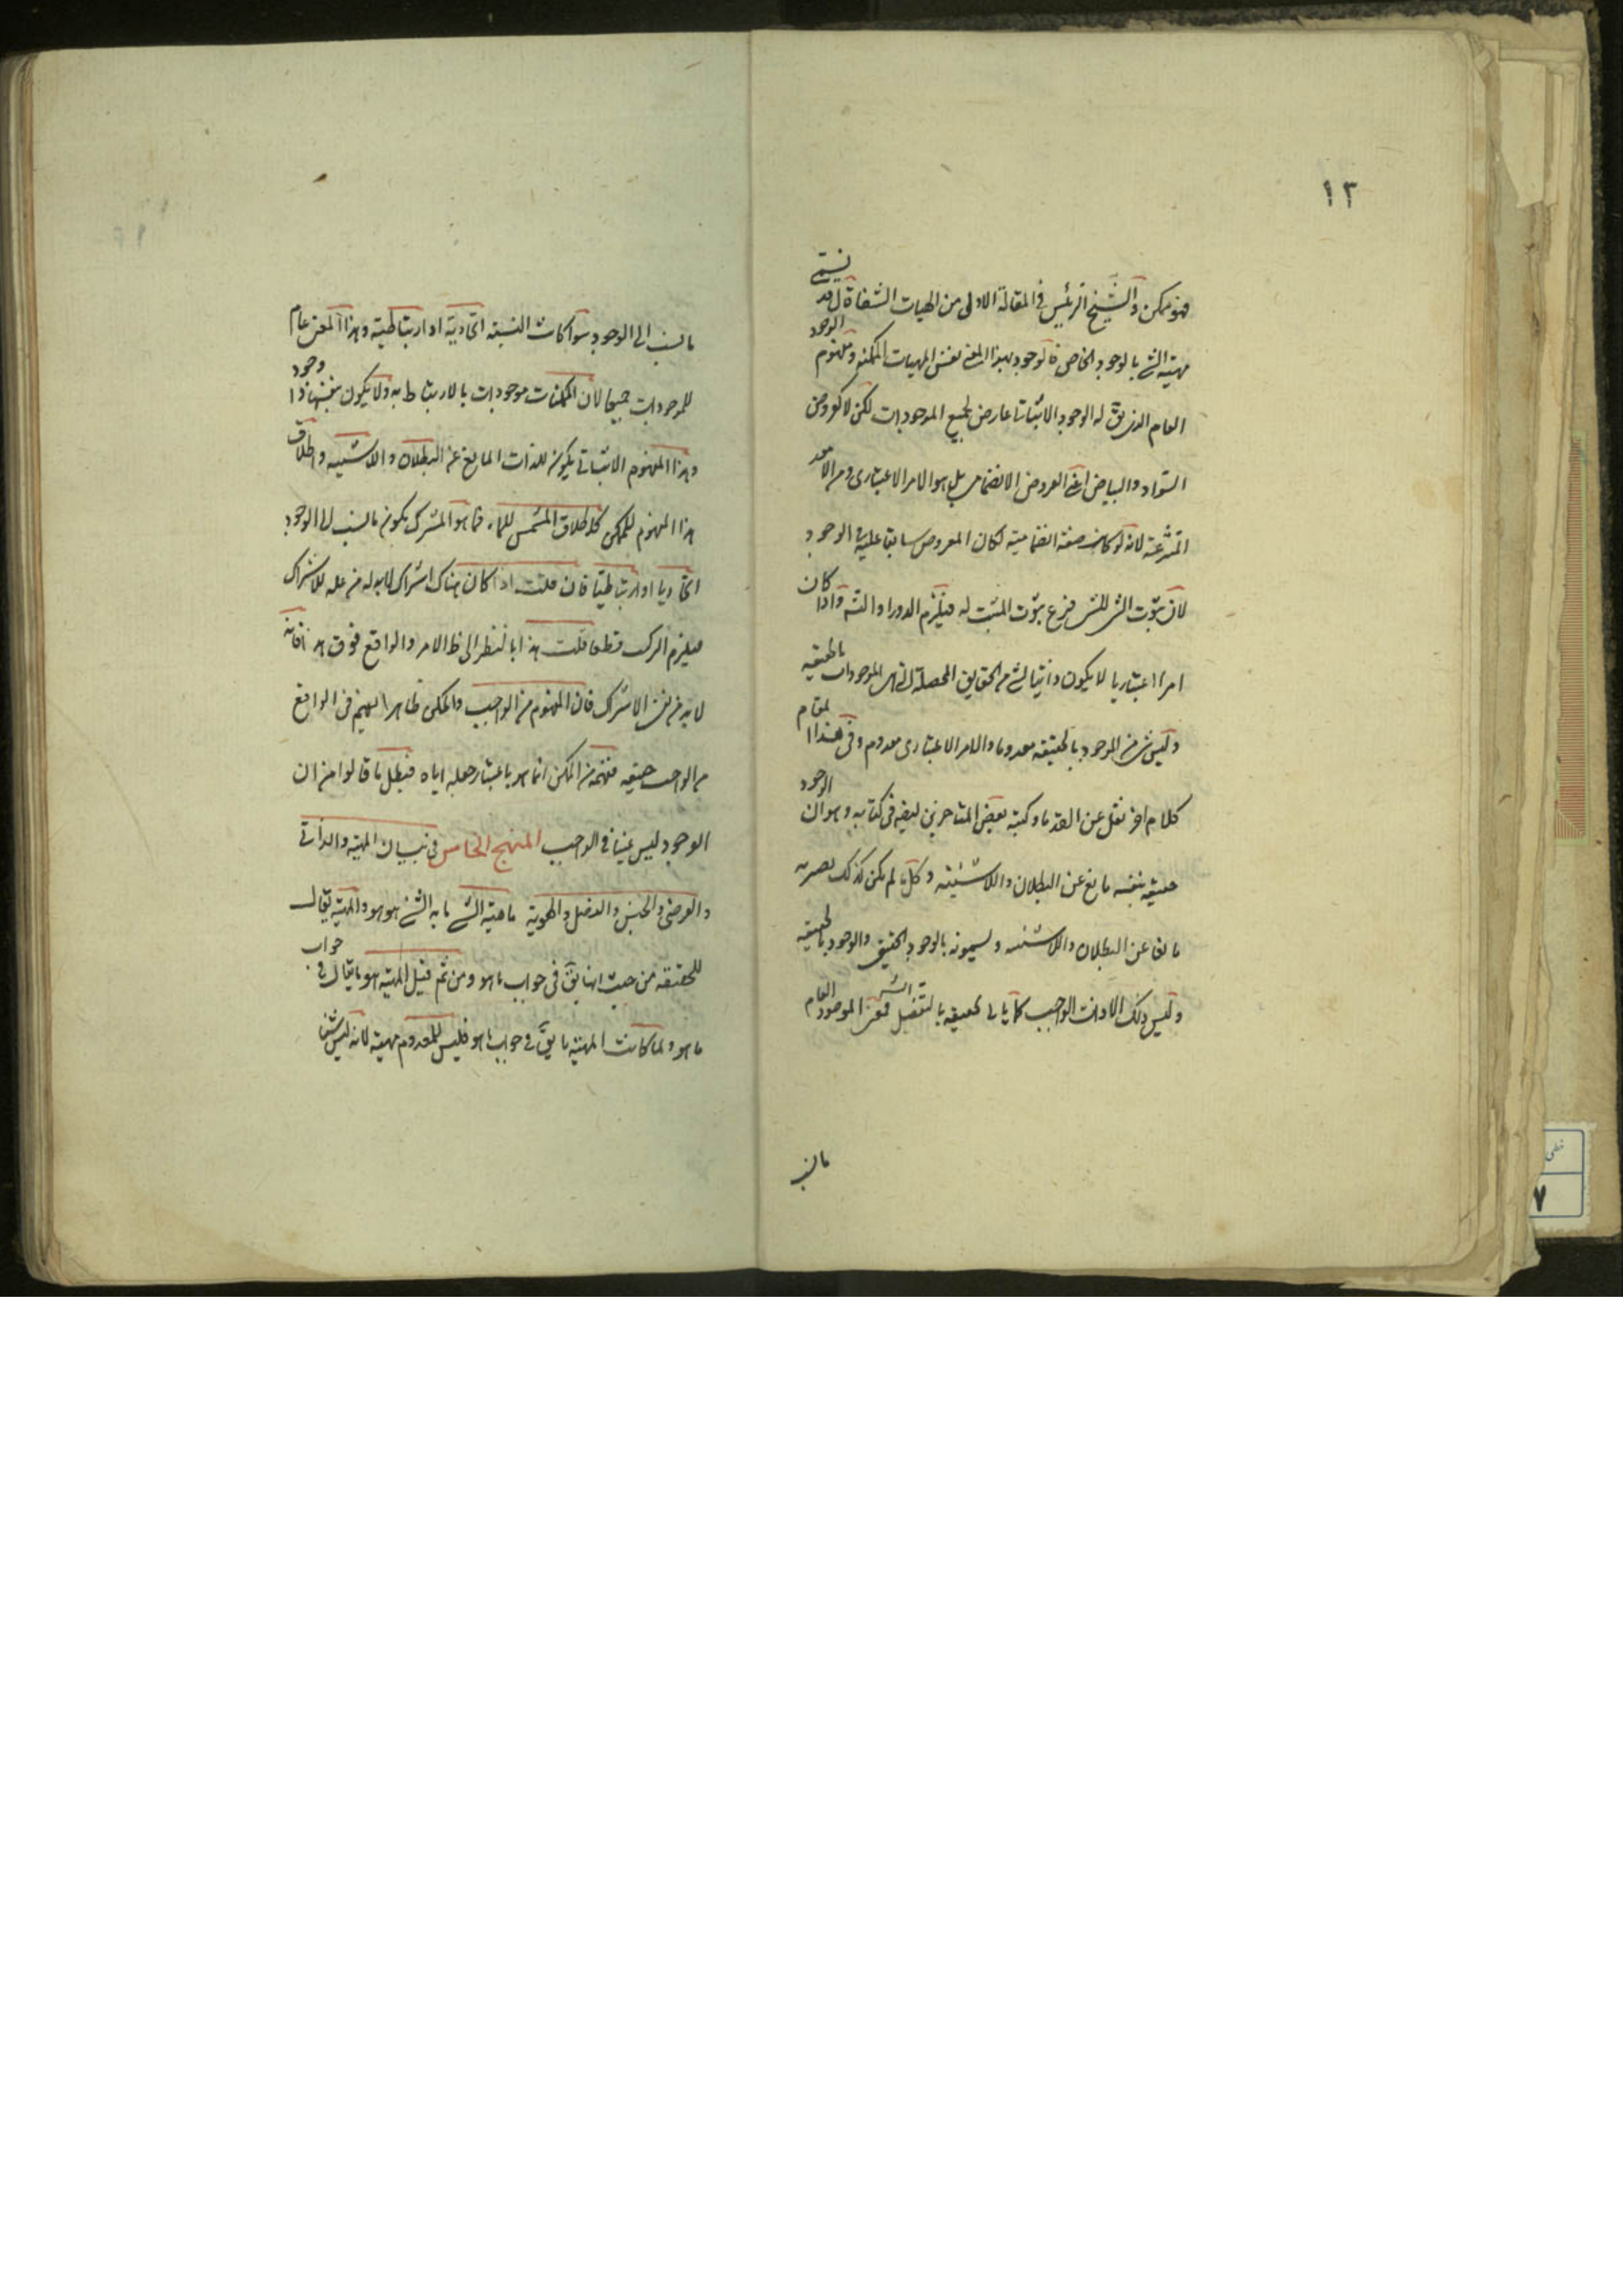 ١٢
فهو ممكن والشيخ الرئيس في المقالة الاولى من الهيات الشفا قال قد يسمى
مهية الشئ بالوجود الخاص فالوجود بهذا المعنى نفس المهيات الممكنة ومفهوم الوجود
العام الذى يق له الوجود الاثباتى عارض لجميع الموجودات لكن لا كعروض
السواد والبياض اعنى العروض الانضمامى بل هو الامر الاعتبارى ومن الامور
المنتزعة لانه لو كانت صفة انضمامية لكان المعروض سابقا عليه فى الوجود
لان ثبوت الشئ للشئ فرع ثبوت المثبت له فيلزم الدور او التسه واذا كان
امرا اعتباريا لا يكون ذاتيا لشئ من الحقايق المحصلة التى هى الموجودات بالحقيقه
وليس شئ من الموجود بالحقيقه معدوما والامر الاعتبارى معدوم وفى هذا المقام
كلام اخر نقل عن القدما وكتبه بعض المتاخرين ايضا فى كتابه وهو ان الوجود
حقيقه بنفسه مانع عن البطلان واللاشيئيه وكل ما لم يكن كذلك يصير به
مانعا عن البطلان واللاشيئيه ويسمونه بالوجود الحقيقى والوجود بالحقيقه
وليس ذلك الا ذات الواجب كما ياتى تحقيقه بالتفصيل فمعنى الموجود العام
مانسب
مانسب الى الوجود سوا كانت النسبة اتحادية او ارتباطية وهذا المعنى عام
للموجودات جميعا لان الممكنات موجودات بالارتباط به ولا يكون بنفسها ذا وجود
وهذا المفهوم الاثباتى يكون للذات المانع عن البطلان واللاشيئيه واطلاق
هذا المفهوم للممكن كاطلاق المشمس للماء فما هو المشترك يكون مانسب الى الوجود
اتحاديا او ارتباطيا فان قلت اذا كان هناك اشتراك لابد له من علة للاشتراك
فيلزم التركب قطعا قلت هذا بالنظر الى ظ الامر والواقع فوق هذا فانه
لابد من نفى الاشتراك فان المفهوم من الواجب والممكن ظاهرا يفهم فى الواقع
من الواجب حقيقه ففهمه من الممكن انما هو باعتبار جعله اياه فبطل ما قالوا من ان
الوجود ليس عينا فى الواجب المنهج الخامس فى بيان المهية والذاتى
والعرضى والجنس والفصل والهوية ماهية الشئ ما به الشئ هو هو والمهية يقال
للحقيقه من حيث انها يق فى جواب ما هو ومن ثم قيل المهية هو ما يقال فى جواب
ما هو ولما كانت المهية ما يق فى جواب ما هو فليس للمعدوم مهية لانه ليس شيئا